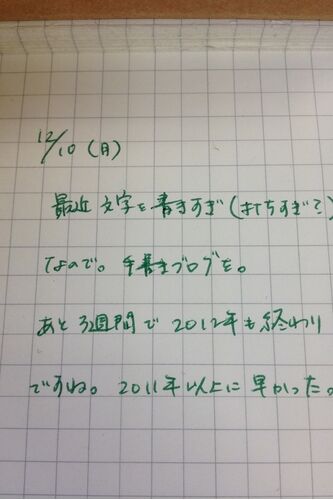 12/10 (月)
最近文字を書きすぎ(打ちすぎ?)
なので。手書きブログを。
あと3週間で2012年も終わり
ですね。2011年以上に早かった。